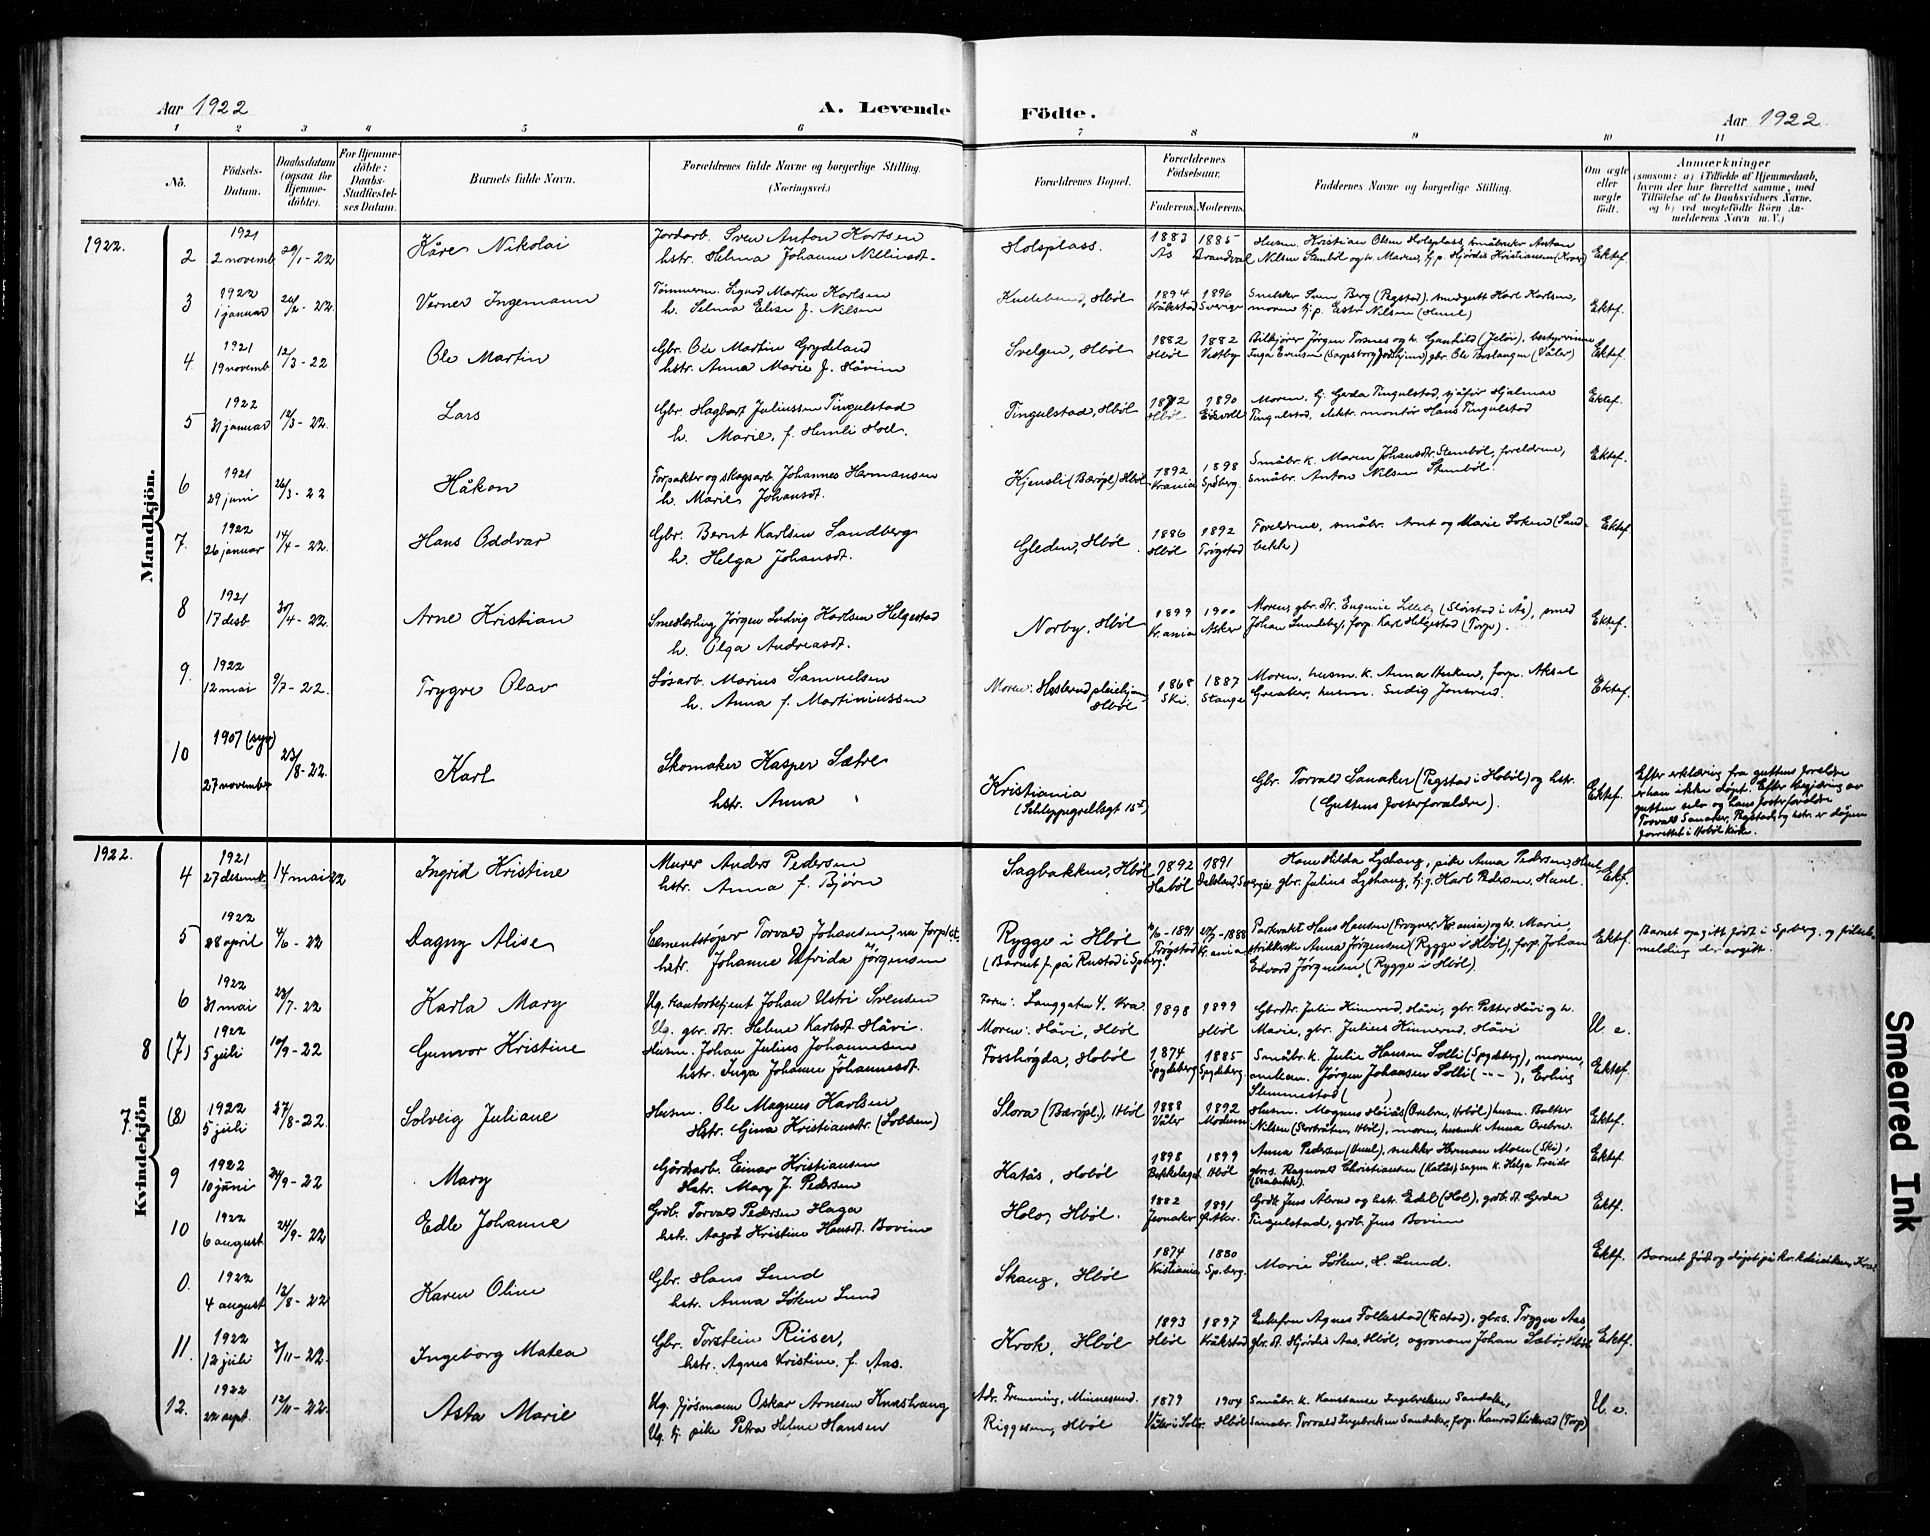 Aar 1922
A. Levende
Födte.
Aar 1922.
1 2 3 4 5 6 7 8 9 10 11
No.
Födsels-
Datum.
Daabsdatum
(ogsaa for
Hjemme-
döbte).
For Hjemme-
döbte:
Daabs-
Stadfæstel-
ses Datum.
Barnets fulde Navn.
Forældrenes fulde Navne og borgerlige Stilling.
(Næringsvei.)
Forældrenes Bopæl.
Forældrenes
Födselsaar.
Faderens.
Moderens.
Faddernes Navne og borgerlige Stilling.
Om ægte
eller
uægte
födt.
Anmærkninger
(saasom: a) i Tilfælde af Hjemmedaab,
hvem der har forrettet samme, med
Tilföielse af to Daabsvidners Navne,
og b) ved uægtefödte Börn An-
melderens Navn m. V.)
Mandkjön.
1922.
2 1921 2 novemb. 29/1-22 Kåre Nikolai
Jordarb. Sven Anton Karlsen
hstr. Helma Johanne
Holsplass. 1883 Ås 1885 Brandval
Husm. Kristian Olsen Holsplass, småbruker Anton
Nilsen Stenböl og h. Maren, tj.p. Hjördis Kristiansen
Ektef.
3 1922 1 januar 26/2-22 Verner Ingemann
Tömmerm. Sigurd Martin Karlsen
h. Selma Elise f. Nilsen
Hböl 1894 Kråkstad 1896 Sverige
Snekker Sven Berg (Pegstad), smedgutt Karl Karlsen,
moren, tj.p. Ester Nilsen (Huul)
Ektef.
4 1921 19 novemb. 12/3-22 Ole Martin
Gbr. Ole Martin Grydeland
hstr. Anna Marie f. Håvin
Svelgen, Hböl 1882 Hböl 1882 Vestby
Bilkjörer Jörgen Tosnes og h. Gunhild (Jelöi), bestyrerinne
Inga Evensen (Sarpsborg), gbr. Ole (Våler)
Ektef.
5 1922 31 januar 12/3-22 Lars
Gbr. Hagbart Juliussen Tingulstad
h. Marie, f. Hemli Hoel.
Tingulstad, Hböl Hböl 1890 Eidsvoll
Moren, tj. Gerda Tingulstad, sjåför Hjalmar
Tingulstad, elektr. montör Hans Tingulstad
Ektef.
6 1921 29 juni 26/3-22 Håkon
Forpakter og skogsarb. Johannes Hermansen
h. Marie Johansdt.
Kjensli (Bæröpl.) Hböl 1892 Krania 1898 Spberg.
Småbr.k. Maren Johansdtr. Stenböl, foreldrene,
småbr. Anton Nilsen Stenböl.
Ektef.
7. 1922 26 januar 14/4-22. Hans Oddvar
Gbr. Bernt Karlsen Sandberg
h. Helga Johansdt.
Gleden, Hböl 1886 Hböl 1892 Trögstad
Foreldrene, småbr. Arnt og Marie Loken (Sand-
bekk)
Ektef.
8 1921 17 desb. 30/4-22. Arne Kristian
Smedlærling Jörgen Ludvig Karlsen Helgestad
h. Olga Andreasdt.
Norby, Hböl 1899 Kr.ania 1900 Asker
Moren, gbr. dtr. Eugenie Lilleby (Slörstad i Ås), smed
Johan Lundeby, forp. Karl Helgestad (Torp).
Ektef.
9. 1922 12 mai 9/7-22. Trygve Olav
Lösarb. Marius Samuelsen
h. Anna f. Martiniussen
Moren: Haslerud pleiehjem
Hböl 1868 Ski. 1887 Stange
Moren, husm. k. Anna, forp. Aksel
Greaker, husm. Jonsrud.
Ektef.
10 1907 (syv) 27 november 23/8-22. Karl
Skomaker Kasper Sætre
hstr. Anna
Kristiania
(Schleppegrellsgt 15 II)
Gbr. Torvald Sanaker (Pegstad i Hoböl) og hstr.
(Guttens fosterforældre).
Ektef.
Efter erklæring fra guttens foreldre
er han ikke döpt. Efter begjæring av
gutten selv og hans fosterforeldre
Torvald Sanaker, Pegstad, og hstr. er dåpen
forrettet i Hoböl Kirke.
Kvindekjön
1922.
4 1921 27 desemb. 14 mai 22 Ingrid Kristine
Murer Anders Pedersen
hstr. Anna f. Björn
Sagbakken, Hböl 1892 Haböl 1891 Dalsland, Sverige
Kone Hilda Lyshaug, pike Anna Pedersen, Huul,
gbr. Julius Lyshaug, tj.g. Karl Pedersen, Huul.
Ektf.
5 1922 28 april 4/6-22 Dagny Alise
Cementstöper Torvald Johansen, nu forp. st.
hstr. Johanne Alfrida Jörgensen
Rygge i Hböl
(Barnet f. på Rustad i Spberg. 4/6-1891 Trögstad 20/7-1888 Kr.ania
Parkvakt Hans Hansen (Frogner, Kr.ania) og h. Marie,
strikkerske Anna Jörgensen (Rygge i Hböl), forp. Johan
Edvard Jörgensen, (Rygge i Hböl).
Ektef.
Barnet opgitt födt i Spberg. og födsels-
melding der avgitt.
6 1922 31 mai 23/7-22 Karla Mary
Ug. kantorbetjent Johan Ustri Svensen
Ug. gbr. dtr. Helene Karlsdt. Håvi.
Faren: Langgaten 4. Kra.
Moren: Håvi, Hböl 1898 1899 Hböl
Gbrdtr. Julie Kinnerud, Håvi, gbr. Petter Håvi og h.
Marie, gbr. Julius Kinnerud, Håvi
U. e.
8 (7) 1922 5 juli 10/9-22 Gunvor Kristine
Husm. Johan Julius Johannesen
hstr. Inga Johanne Johannesdt.
Fosshögda, Hoböl 1874 Spydeberg 1885 Spydeberg.
Småbr. k. Julie Hansen Solli (Spydeberg), moren,
mellem. Jörgen Johansen Solli (- - -), Erling
Slemmestad ( )
Ektef.
7. (8) 1922 5 juli 27/8-22. Solveig Juliane
Husm. Ole Magnus Karlsen
Hstr. Gina Kristiansdtr. (Lobben)
Slora (Bæröpl.), Hböl 1888 Våler 1892 Modum
Husm. Magnus Höiås (Orebru, Hoböl) husm. Balter
Nilsen (Hböl), moren, husm.k. Anna Orebru.
Ektef.
9 1922 10 juni 24/9-22 Mary
Gårdsarb. Einar Kristiansen
Hstr. Mary f. Pedersen
Katås, Hoböl 1898 Bekkelaget 1899 Hböl
Anna Pedersen (Huul), snekker Herman Moren (Ski),
gbrs. Ragnvald Christiansen (Katås) Sagm. k. Helga Treider
Ektef.
10 1922 6 august 24/9-22 Edle Johanne
Grdb. Torvald Pedersen Haga
hstr. Aagot Kristine Hansdt. Bovim
Holo, Hböl. 1882 Jevnaker 1891
Grdb. Jens Åbrud og hstr. Edel (Hol), grdb. dt. Gerda
Tingulstad, grdb. Jens Bovim
Ektf.
0. 1922 4 august 13/8-22 Karen Oline
Gbr. Hans Lund
hstr. Anna Löken Lund
Skaug, Hböl 1874 Kristiania 1880 Sp.berg.
Marie Löken, H. Lund.
Ektf.
Barnet födt og döpt på Kv.kliniken, Kra.
11. 1922 12 juli 5/11-22. Ingeborg Matea
Gbr. Torstein Riiser,
hstr. Agnes Kristine, f. Aas.
Krok, Hböl 1893 Hböl 1897 Kråkstad
Enkefru Agnes Follestad (Festad), gbrs. Trygve Aas,
gbr. dt. Hjördis Aas, Hböl, agronom Johan Sæbö, Hböl
Ektf.
12. 1922 22 sept. 12/11-22. Asta Marie
Ug. fjösmann Oskar Arnesen Knashaug
Ug. tj. pike Petra Helene Hansen
Adr. Fremming, Minnesund.
Riggesen, Hböl 1879 Våler i Solör. 1904 Hböl
Småbr. k. Konstanse Ingebretsen Sandaker,
Småbr. Torvald Ingebretsen Sandaker, forp. Konrad Kirkerud (Torp)
U. e.
Smeared Ink